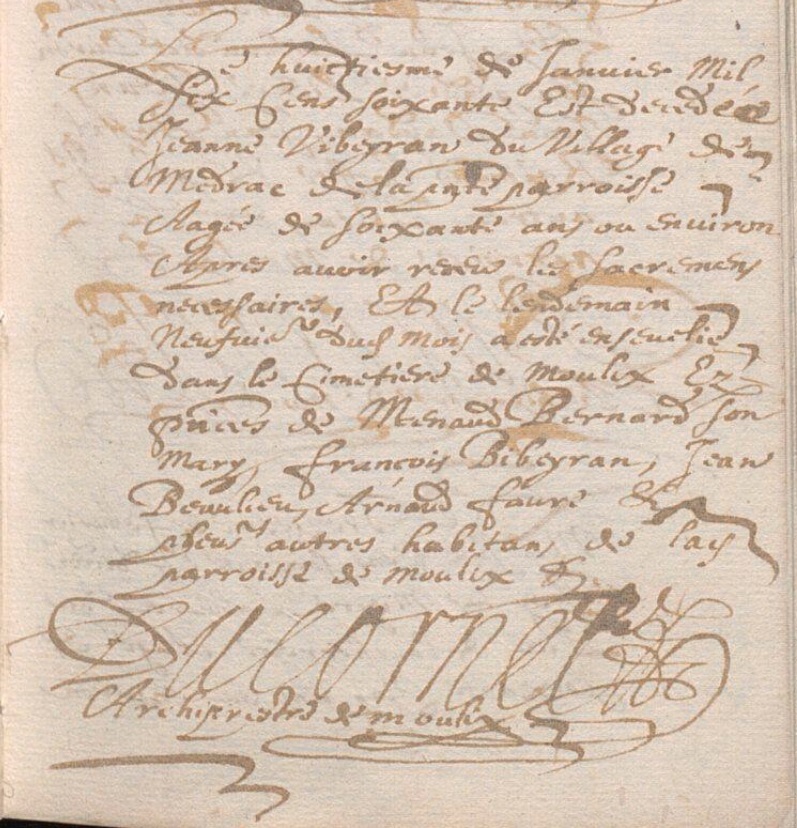 Le huictiesme de Janvier Mil
six Cens soixante Est decedée
Jeanne Vibeyran du Village de
Medrac de la pnte parroisse
Aagée de soixante ans ou environ
Apres avoir receu les sacremens
necessaires, Et le lendemain
Neufvie^e dud mois a esté ensevelie
dans le Cimetiere de Moulix Ez
pnces de Menaud Bernard son
Mary, françois Bibeyran, Jean
Beaulieu, Arnaud faure &
plieus^rs autres habitans de lad
parroisse de Moulix &
Ducornet
Archiprestre de moulix